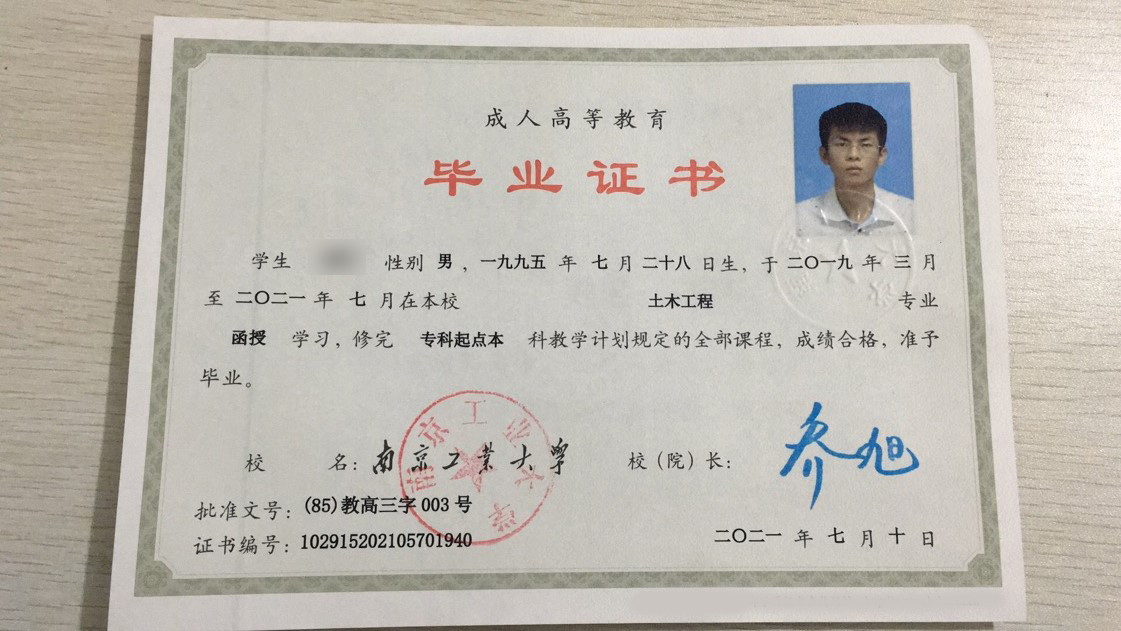 成人高等教育
毕业证书
学生 性别 男，一九九五 年 七 月 二十八 日生，于 二〇一九 年 三 月
至 二〇二一 年 七 月在本校 土木工程 专业
函授 学习，修完 专科起点本 科教学计划规定的全部课程，成绩合格，准予
毕业。
校 名：南京工业大学 校（院）长：乔旭
南京工业大学
批准文号：(85)教高三字 003 号
证书编号：102915202105701940
二〇二一 年 七 月 十 日